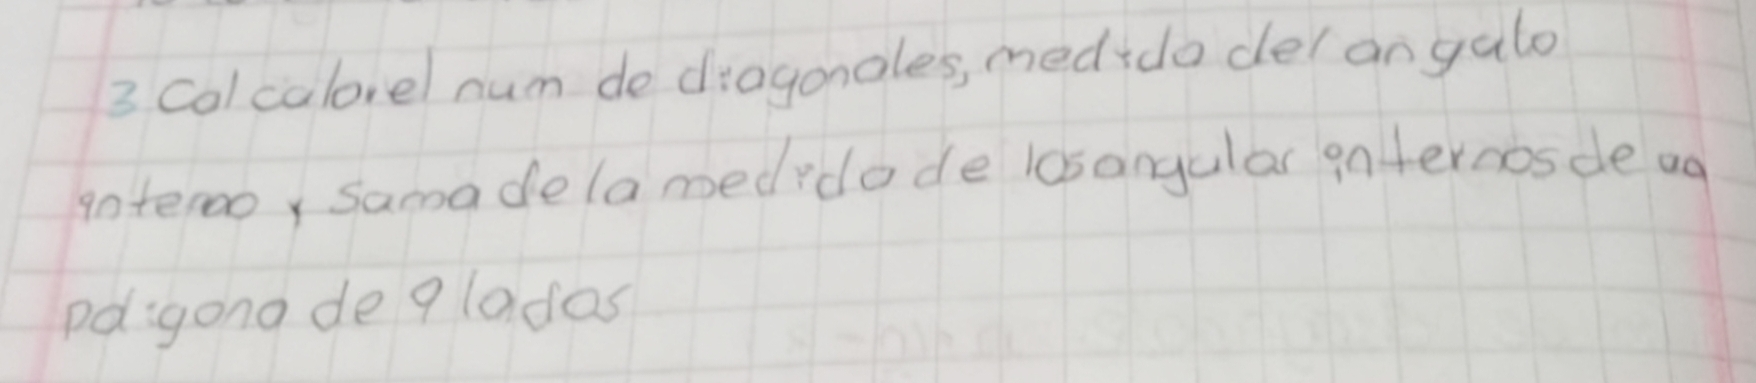 3 Calcular el num de diagonales, medida del angulo
interno y suma de la medida de los angular internos de un
poligono de 9 lados